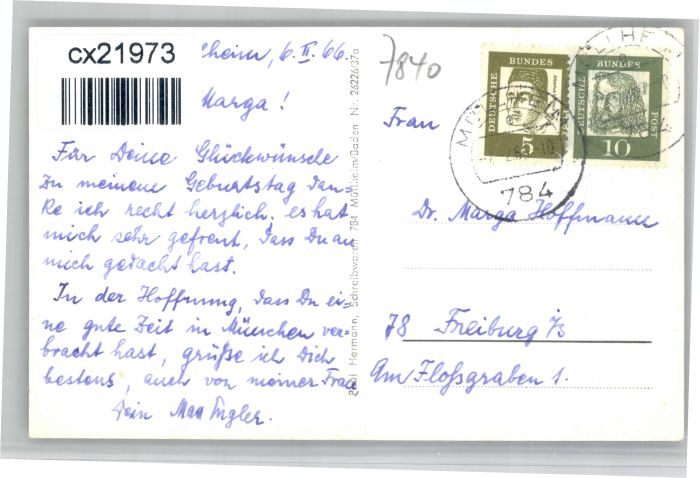 cx21973
heim, 6. II. 66.
7840
Marga!
Für Deine Glückwünsche
zu meinem Geburtstag dan=
ke ich recht herzlich. es hat
mich sehr gefreut, dass Du an
mich gedacht hast.
In der Hoffnung, dass Du ei=
ne gute Zeit in München ver=
bracht hast, grüße ich Dich
bestens, auch von meiner Frau
Dein Max
Hermann, Schreibwaren 784 Müllheim/Baden Nr. 26226/37a
DEUTSCHE BUNDESPOST
5
DEUTSCHE BUNDESPOST
10
784
Frau
Dr. Marga Hoffmann
78 Freiburg i/B
Am Floßgraben 1.